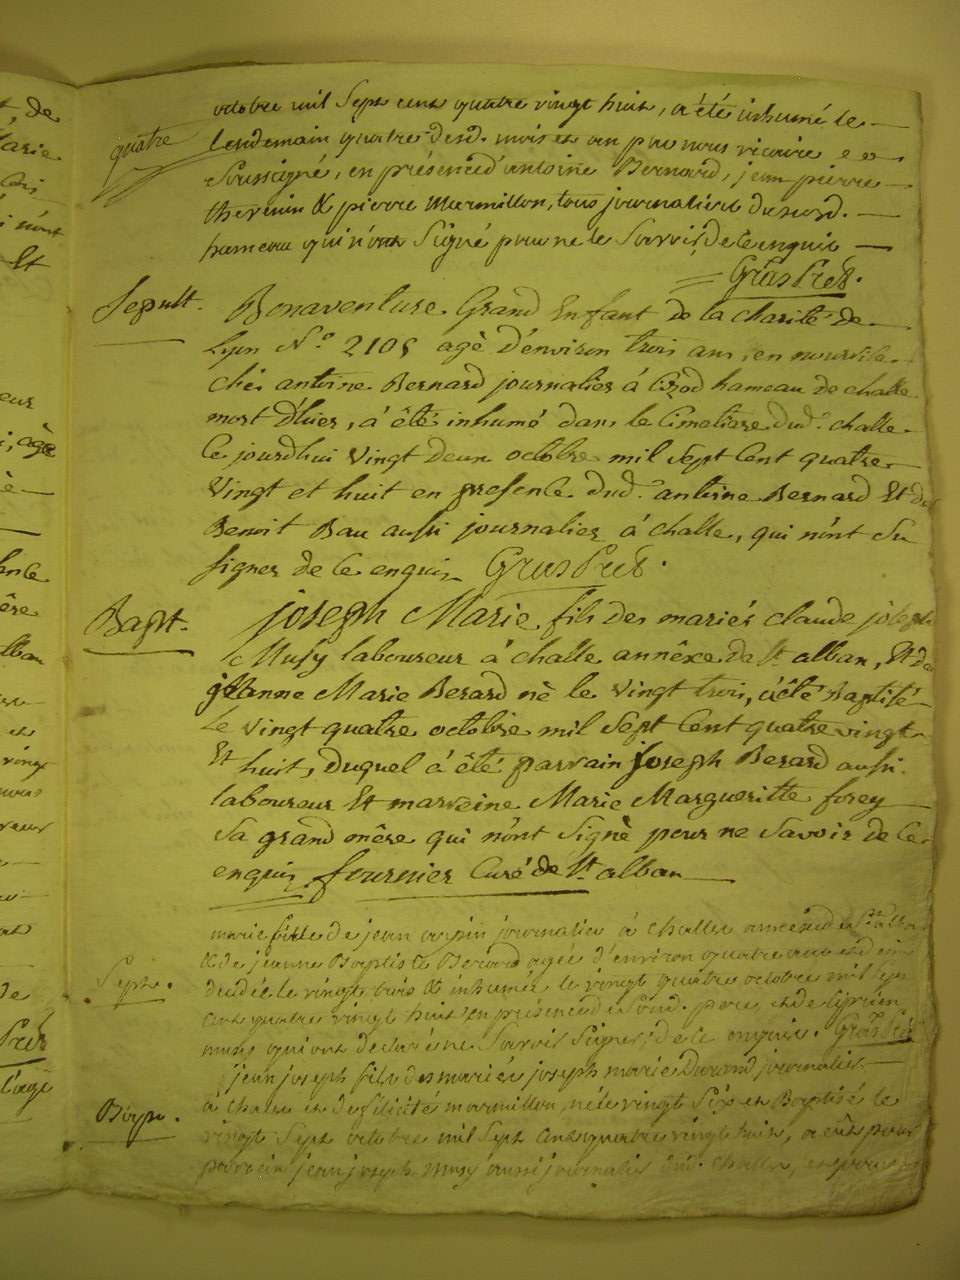 octobre mil sept cent quatre vingt huit, a été inhumé le
quatre
lendemain quatre desd. mois et an par nous vicaire
soussigné, en présence d'antoine Bernard, jean pierre
thevenin & pierre Marmillon, tous journaliers dud.
hameau qui n'ont signé pour ne le savoir, de ce enquis
Gras Prêt.
Sepult.
Bonaventure Grand Enfant de la charité de
Lyon N.o 2105 agè d'environ trois ans, en nourrice
chés antoine Bernard journalier à hameau de challe
mort d'hier, a été inhumé dans le Cimetiere dud. challe
Ce jourdhui Vingt deux octobre mil sept Cent quatre
Vingt et huit en presence dud. antoine Bernard Et de
Benoit Bau aussi journalier à challe, qui n'ont su
signer de ce enquis Gras Prêt.
Bapt.
joseph Marie fils des mariés claude joseph
Musy laboureur à challe annèxe de St. alban, Et de
jeanne Marie Berard nè le Vingt trois, a été Baptisé
Le vingt quatre octobre mil sept Cent quatre vingt
Et huit, duquel a été parrain joseph Berard aussi
laboureur Et marreine Marie Margueritte forey
sa grand mère qui n'ont signè pour ne savoir de Ce
enquis fournier Curé de St. alban
marie fille de jean journalier à Challes annexe de St. alban
& de jeanne Baptiste Berard agée d'environ quatre ans et demi
decedée le vingt trois & inhumée le vingt quatre octobre mil sept
cent quatre vingt huit en présence de sond. pere et de Cyprien
Sept.
musy qui ont declaré ne savoir signer de ce enquis. Gras Prêt
jean joseph fils des mariés joseph marie Durand journalier
à Chales et de félicité marmillon, né le vingt six et Baptisé le
Bapt.
vingt sept octobre mil sept cent quatre vingt huit, a eu pour
parrain jean joseph musy aussi journalier aud. Challes,